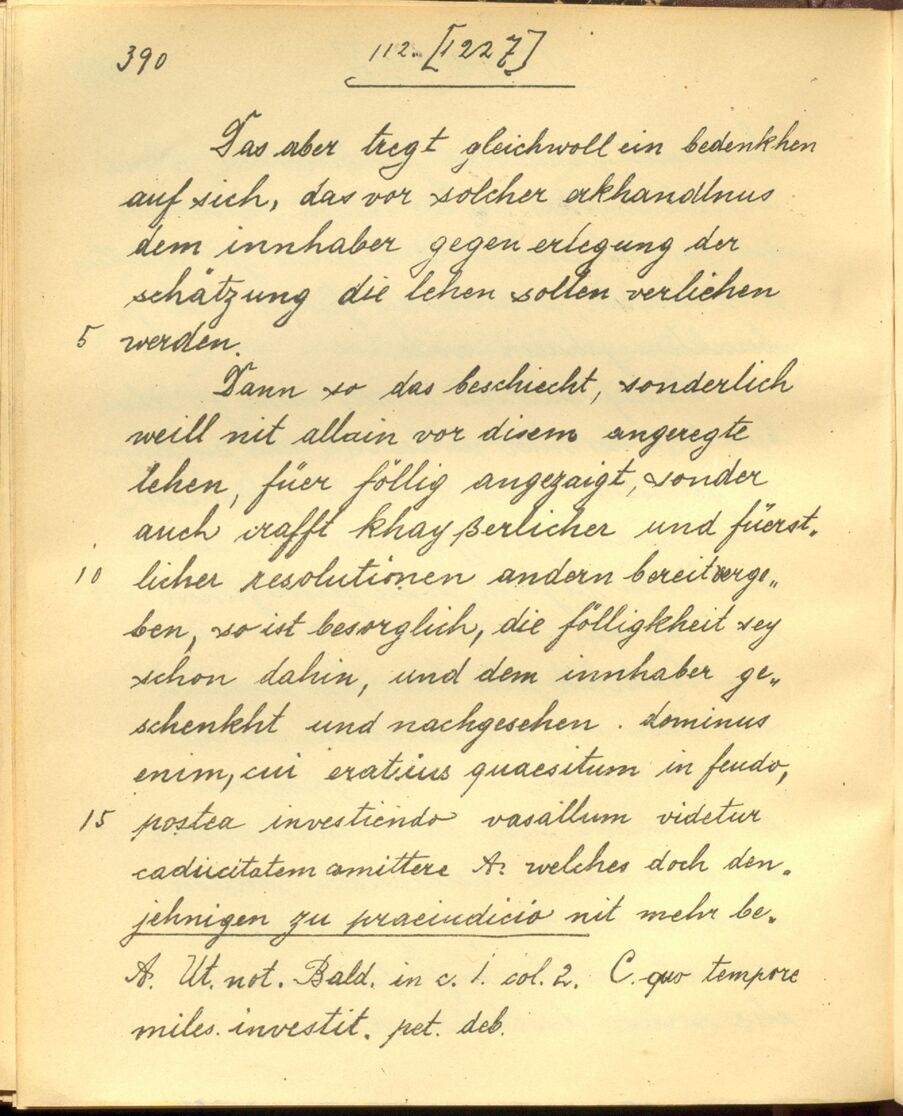 390
112. [1227]
Das aber tregt gleichwoll ein bedenkhen
auf sich, das vor solcher erkhandtnus
dem innhaber gegen erlegung der
schätzung die lehen sollen verlichen
5 werden.
Dann so das beschiecht, sonderlich
weill nit allain vor disem angeregte
lehen, füer föllig angezaigt, sonder
auch crafft khayßerlicher und füerst„
10 licher resolutionen andern bereit verge„
ben, so ist besorglich, die fölligkheit sey
schon dahin, und dem innhaber ge„
schenkht und nachgesehen. dominus
enim, cui erat ius quaesitum in feudo,
15 postea investiendo vasallum videtur
caducitatem amittere A. welches doch den„
jehnigen zu praeiudicio nit mehr be„
A. Ut. not. Bald. in c. 1. col. 2. C. quo tempore
miles. investit. pet. deb.